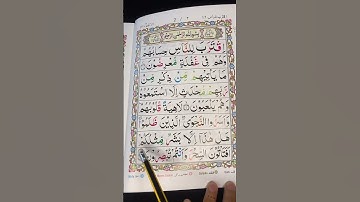 بِسْمِ اللهِ الرَّحْمٰنِ الرَّحِيْمِ
اِقْتَرَبَ لِلنَّاسِ حِسَابُهُمْ
وَهُمْ فِيْ غَفْلَةٍ مُّعْرِضُوْنَ
مَا يَاْتِيْهِمْ مِّنْ ذِكْرٍ مِّنْ
رَّبِّهِمْ مُّحْدَثٍ اِلَّا اسْتَمَعُوْهُ
وَهُمْ يَلْعَبُوْنَ لَاهِيَةً قُلُوْبُهُمْ
وَاَسَرُّوا النَّجْوَى الَّذِيْنَ ظَلَمُوْا
هَلْ هٰذَآ اِلَّا بَشَرٌ مِّثْلُكُمْ
اَفَتَاْتُوْنَ السِّحْرَ وَاَنْتُمْ تُبْصِرُوْنَ